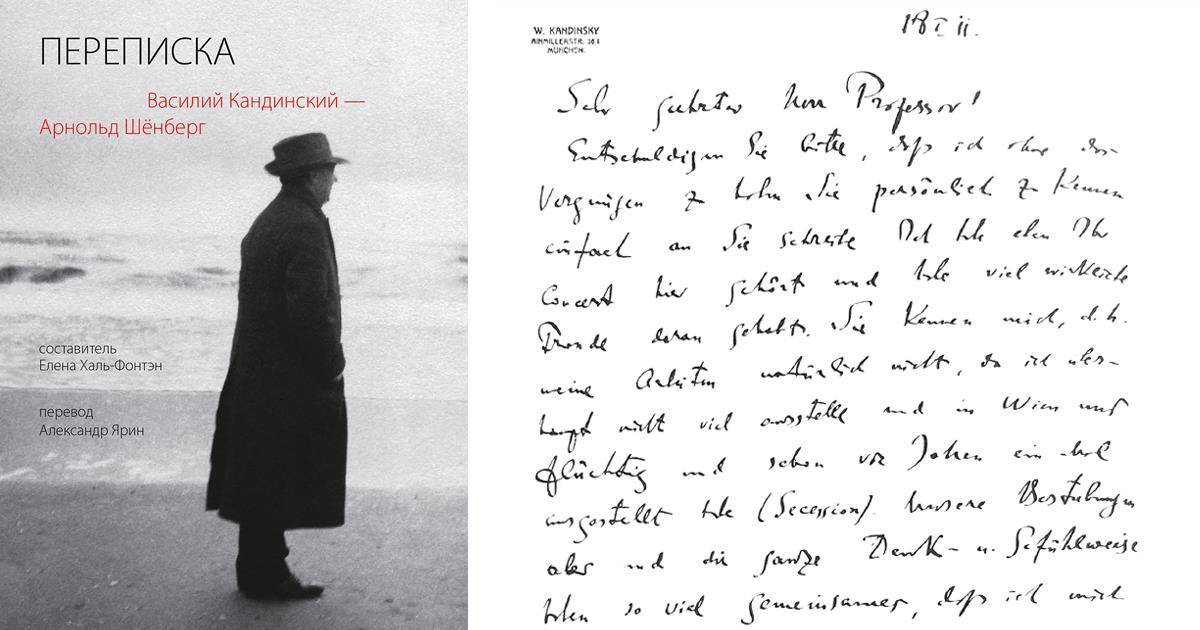 ПЕРЕПИСКА
Василий Кандинский —
Арнольд Шёнберг
составитель
Елена Халь-Фонтэн
перевод
Александр Ярин
W. KANDINSKY
AINMILLERSTR. 36.I
MÜNCHEN.
18 I 11.
Sehr geehrter Herr Professor!
Entschuldigen Sie bitte, daß ich ohne das
Vergnügen zu haben Sie persönlich zu kennen
einfach an Sie schreibe. Ich habe eben Ihr
Concert hier gehört und habe viel wirkliche
Freude daran gehabt. Sie kennen mich, d.h.
meine Arbeiten natürlich nicht, da ich über-
haupt nicht viel ausstelle und in Wien nur
flüchtig und schon vor Jahren ein mal
ausgestellt habe (Secession). Unsere Bestrebungen
aber und die ganze Denk- u. Gefühlsweise
haben so viel gemeinsames, daß ich mich